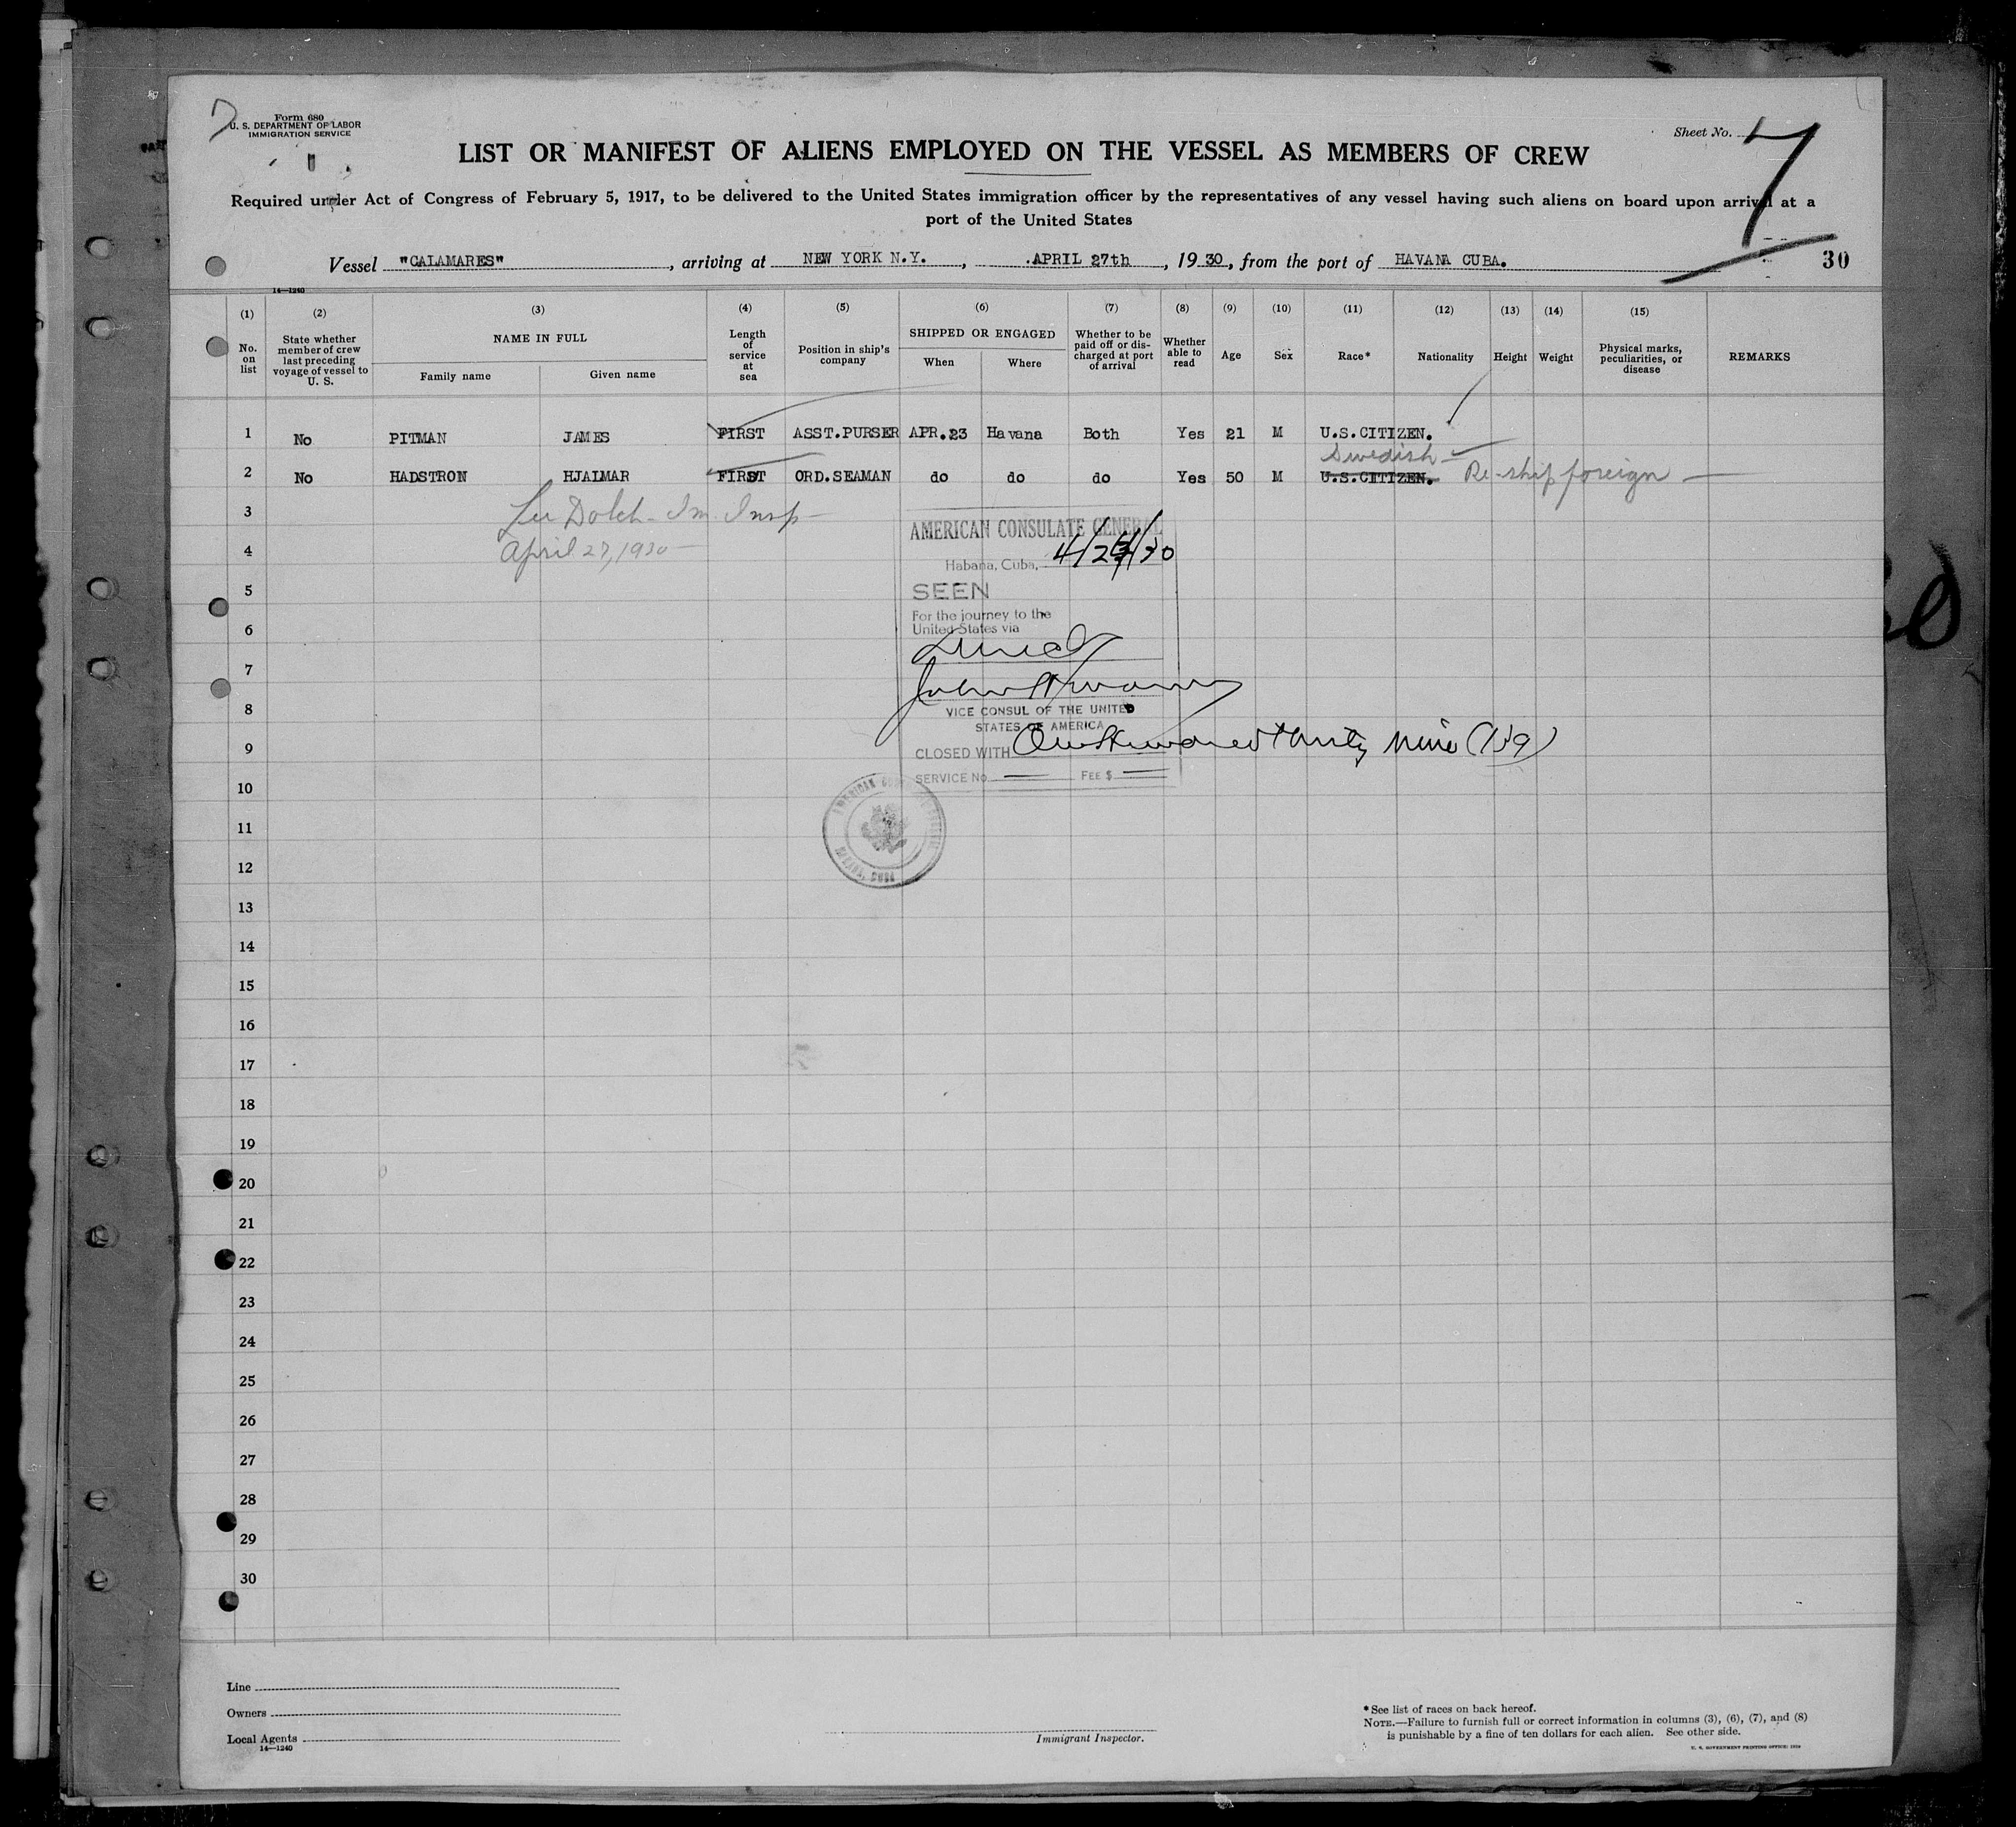 7
Form 680
U. S. DEPARTMENT OF LABOR
IMMIGRATION SERVICE
Sheet No. 7
LIST OR MANIFEST OF ALIENS EMPLOYED ON THE VESSEL AS MEMBERS OF CREW
Required under Act of Congress of February 5, 1917, to be delivered to the United States immigration officer by the representatives of any vessel having such aliens on board upon arrival at a
port of the United States
Vessel "CALAMARES", arriving at NEW YORK N.Y., APRIL 27th, 1930, from the port of HAVANA CUBA. 30
14—1240
(1) (2) (3) (4) (5) (6) (7) (8) (9) (10) (11) (12) (13) (14) (15)
No. on list
State whether member of crew last preceding voyage of vessel to U. S.
NAME IN FULL
Family name Given name
Length of service at sea
Position in ship's company
SHIPPED OR ENGAGED
When Where
Whether to be paid off or discharged at port of arrival
Whether able to read
Age
Sex
Race*
Nationality
Height
Weight
Physical marks, peculiarities, or disease
REMARKS
1 No PITMAN JAMES FIRST ASST.PURSER APR.23 Havana Both Yes 21 M U.S.CITIZEN.
Swedish
2 No HADSTROM HJALMAR FIRST ORD.SEAMAN do do do Yes 50 M U.S.CITIZEN. Re-ship foreign
3 Lee Dolch - Im. Insp
AMERICAN CONSULATE GENERAL
4 April 27, 1930
Habana, Cuba, 4/2 /30
5 SEEN
For the journey to the
6 United States via
Direct
7
8 VICE CONSUL OF THE UNITED
STATES OF AMERICA
9 CLOSED WITH One Hundred thirty nine (139)
SERVICE No. FEE $
10
AMERICAN
HABANA, CUBA
11
12
13
14
15
16
17
18
19
20
21
22
23
24
25
26
27
28
29
30
Line
Owners
Local Agents
14—1240
Immigrant Inspector.
*See list of races on back hereof.
NOTE.—Failure to furnish full or correct information in columns (3), (6), (7), and (8)
is punishable by a fine of ten dollars for each alien. See other side.